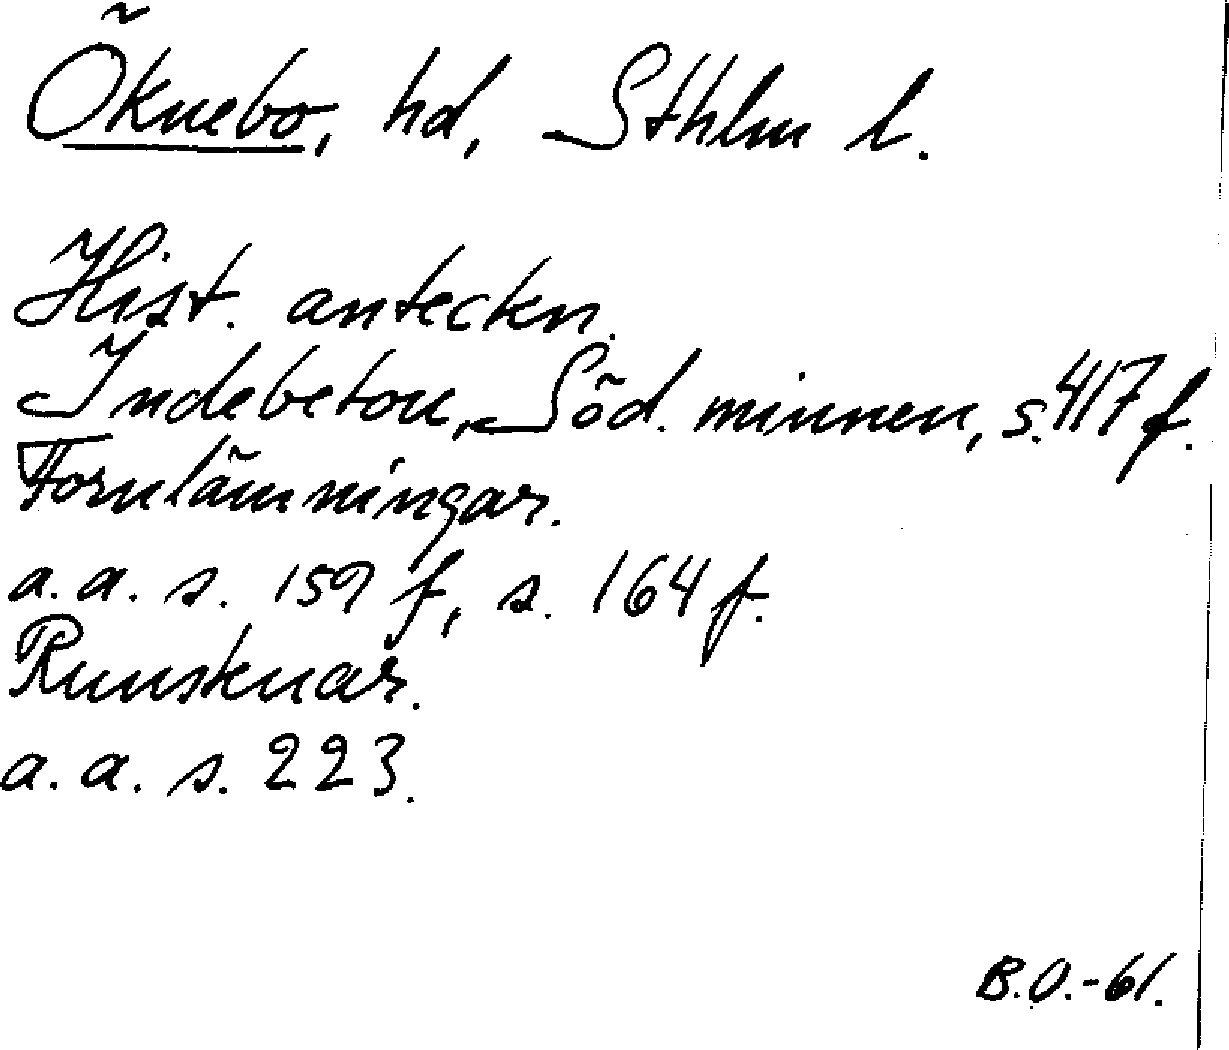 Öknebo, hd, Sthlm l.
Hist. anteckn.
Indebetou, Söd. minnen, s. 417 f.
Fornlämningar.
a. a. s. 159 f, s. 164 f.
Runstenar.
a. a. s. 223.
B.O.-61.